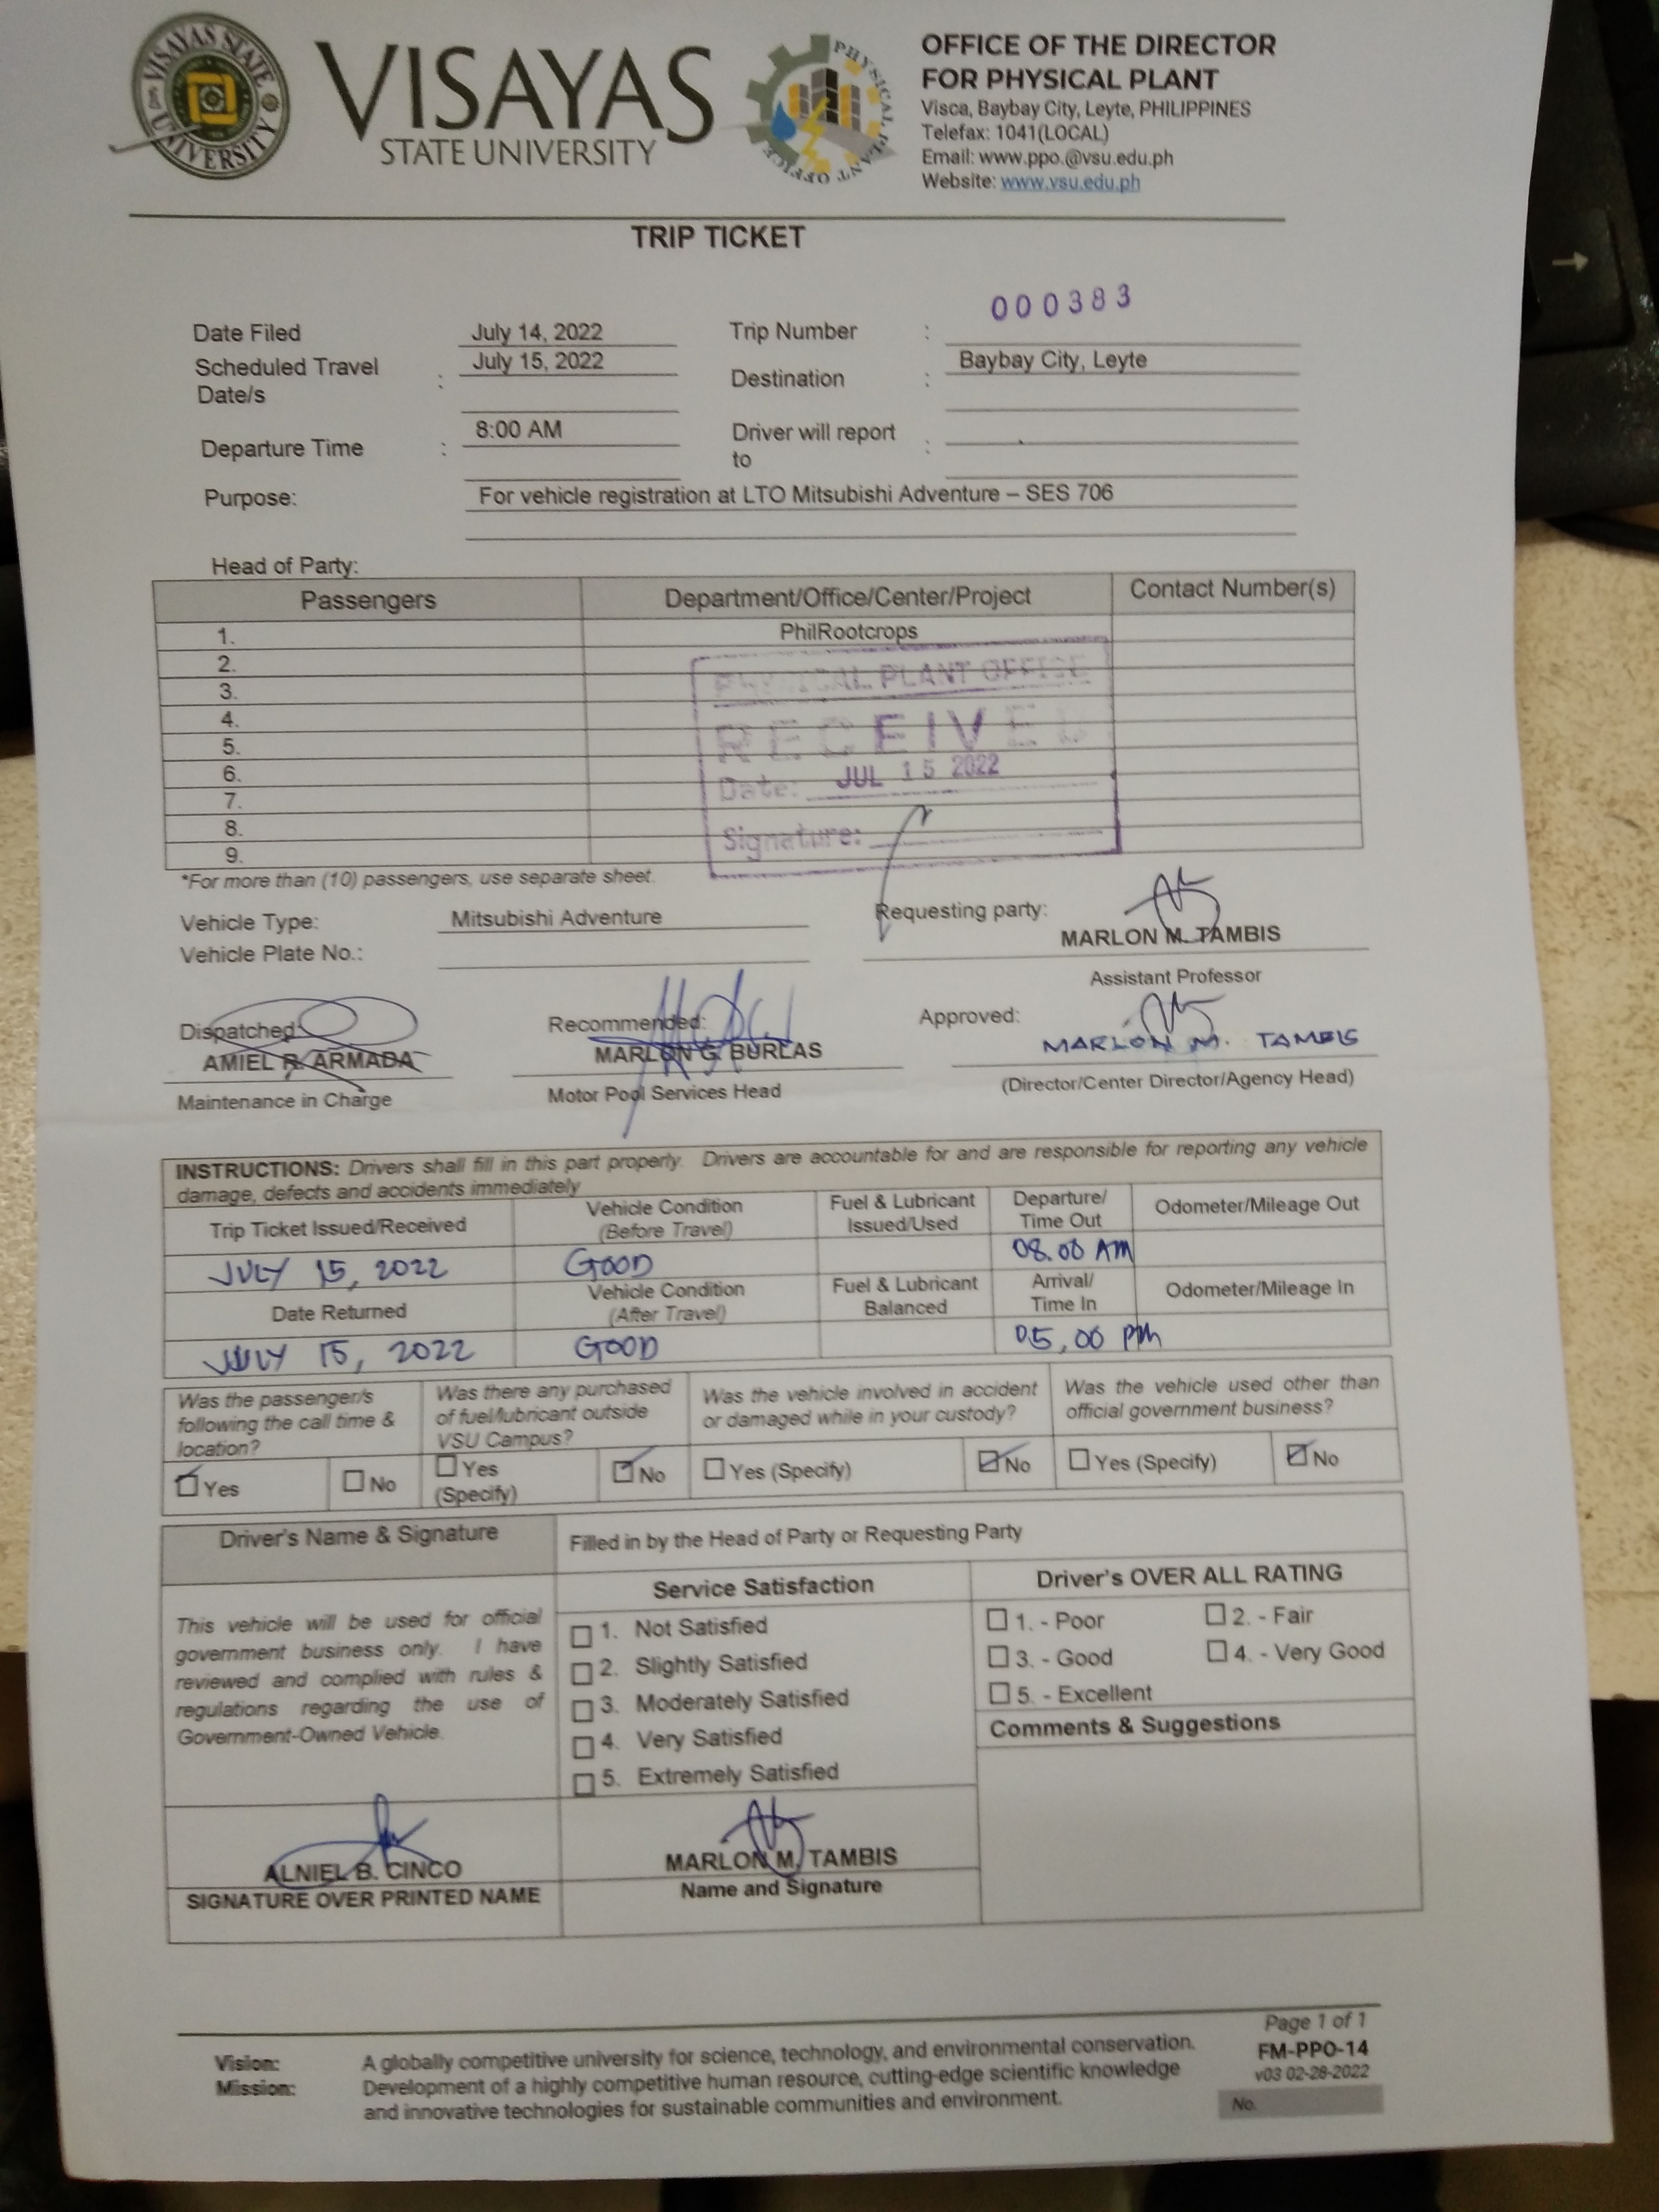 VISAYAS STATE UNIVERSITY
VISAYAS
STATE UNIVERSITY
PHYSICAL PLANT OFFICE
OFFICE OF THE DIRECTOR
FOR PHYSICAL PLANT
Visca, Baybay City, Leyte, PHILIPPINES
Telefax: 1041(LOCAL)
Email: www.ppo.@vsu.edu.ph
Website: www.vsu.edu.ph
TRIP TICKET
000383
Date Filed July 14, 2022 Trip Number :
Scheduled Travel Date/s : July 15, 2022 Destination : Baybay City, Leyte
Departure Time : 8:00 AM Driver will report to :
Purpose: For vehicle registration at LTO Mitsubishi Adventure – SES 706
Head of Party:
Passengers Department/Office/Center/Project Contact Number(s)
1. PhilRootcrops
2.
3.
4.
5.
6.
7.
8.
9.
PHYSICAL PLANT OFFICE
RECEIVED
Date: JUL 15 2022
Signature:
*For more than (10) passengers, use separate sheet.
Vehicle Type: Mitsubishi Adventure Requesting party:
MARLON M. TAMBIS
Vehicle Plate No.:
Assistant Professor
Dispatched: Recommended: Approved:
AMIEL R. ARMADA MARLON G. BURLAS MARLON M. TAMBIS
Maintenance in Charge Motor Pool Services Head (Director/Center Director/Agency Head)
INSTRUCTIONS: Drivers shall fill in this part properly. Drivers are accountable for and are responsible for reporting any vehicle
damage, defects and accidents immediately
Trip Ticket Issued/Received Vehicle Condition (Before Travel) Fuel & Lubricant Issued/Used Departure/ Time Out Odometer/Mileage Out
JULY 15, 2022 GOOD 08.00 AM
Date Returned Vehicle Condition (After Travel) Fuel & Lubricant Balanced Arrival/ Time In Odometer/Mileage In
JULY 15, 2022 GOOD 05,00 PM
Was the passenger/s following the call time & location? Was there any purchased of fuel/lubricant outside VSU Campus? Was the vehicle involved in accident or damaged while in your custody? Was the vehicle used other than official government business?
Yes No Yes (Specify) No Yes (Specify) No Yes (Specify) No
Driver's Name & Signature Filled in by the Head of Party or Requesting Party
Service Satisfaction Driver's OVER ALL RATING
This vehicle will be used for official
government business only. I have
reviewed and complied with rules &
regulations regarding the use of
Government-Owned Vehicle.
1. Not Satisfied
2. Slightly Satisfied
3. Moderately Satisfied
4. Very Satisfied
5. Extremely Satisfied
1. - Poor 2. - Fair
3. - Good 4. - Very Good
5. - Excellent
Comments & Suggestions
ALNIEL B. CINCO MARLON M. TAMBIS
SIGNATURE OVER PRINTED NAME Name and Signature
Page 1 of 1
FM-PPO-14
v03 02-28-2022
No.
Vision: A globally competitive university for science, technology, and environmental conservation.
Mission: Development of a highly competitive human resource, cutting-edge scientific knowledge
and innovative technologies for sustainable communities and environment.